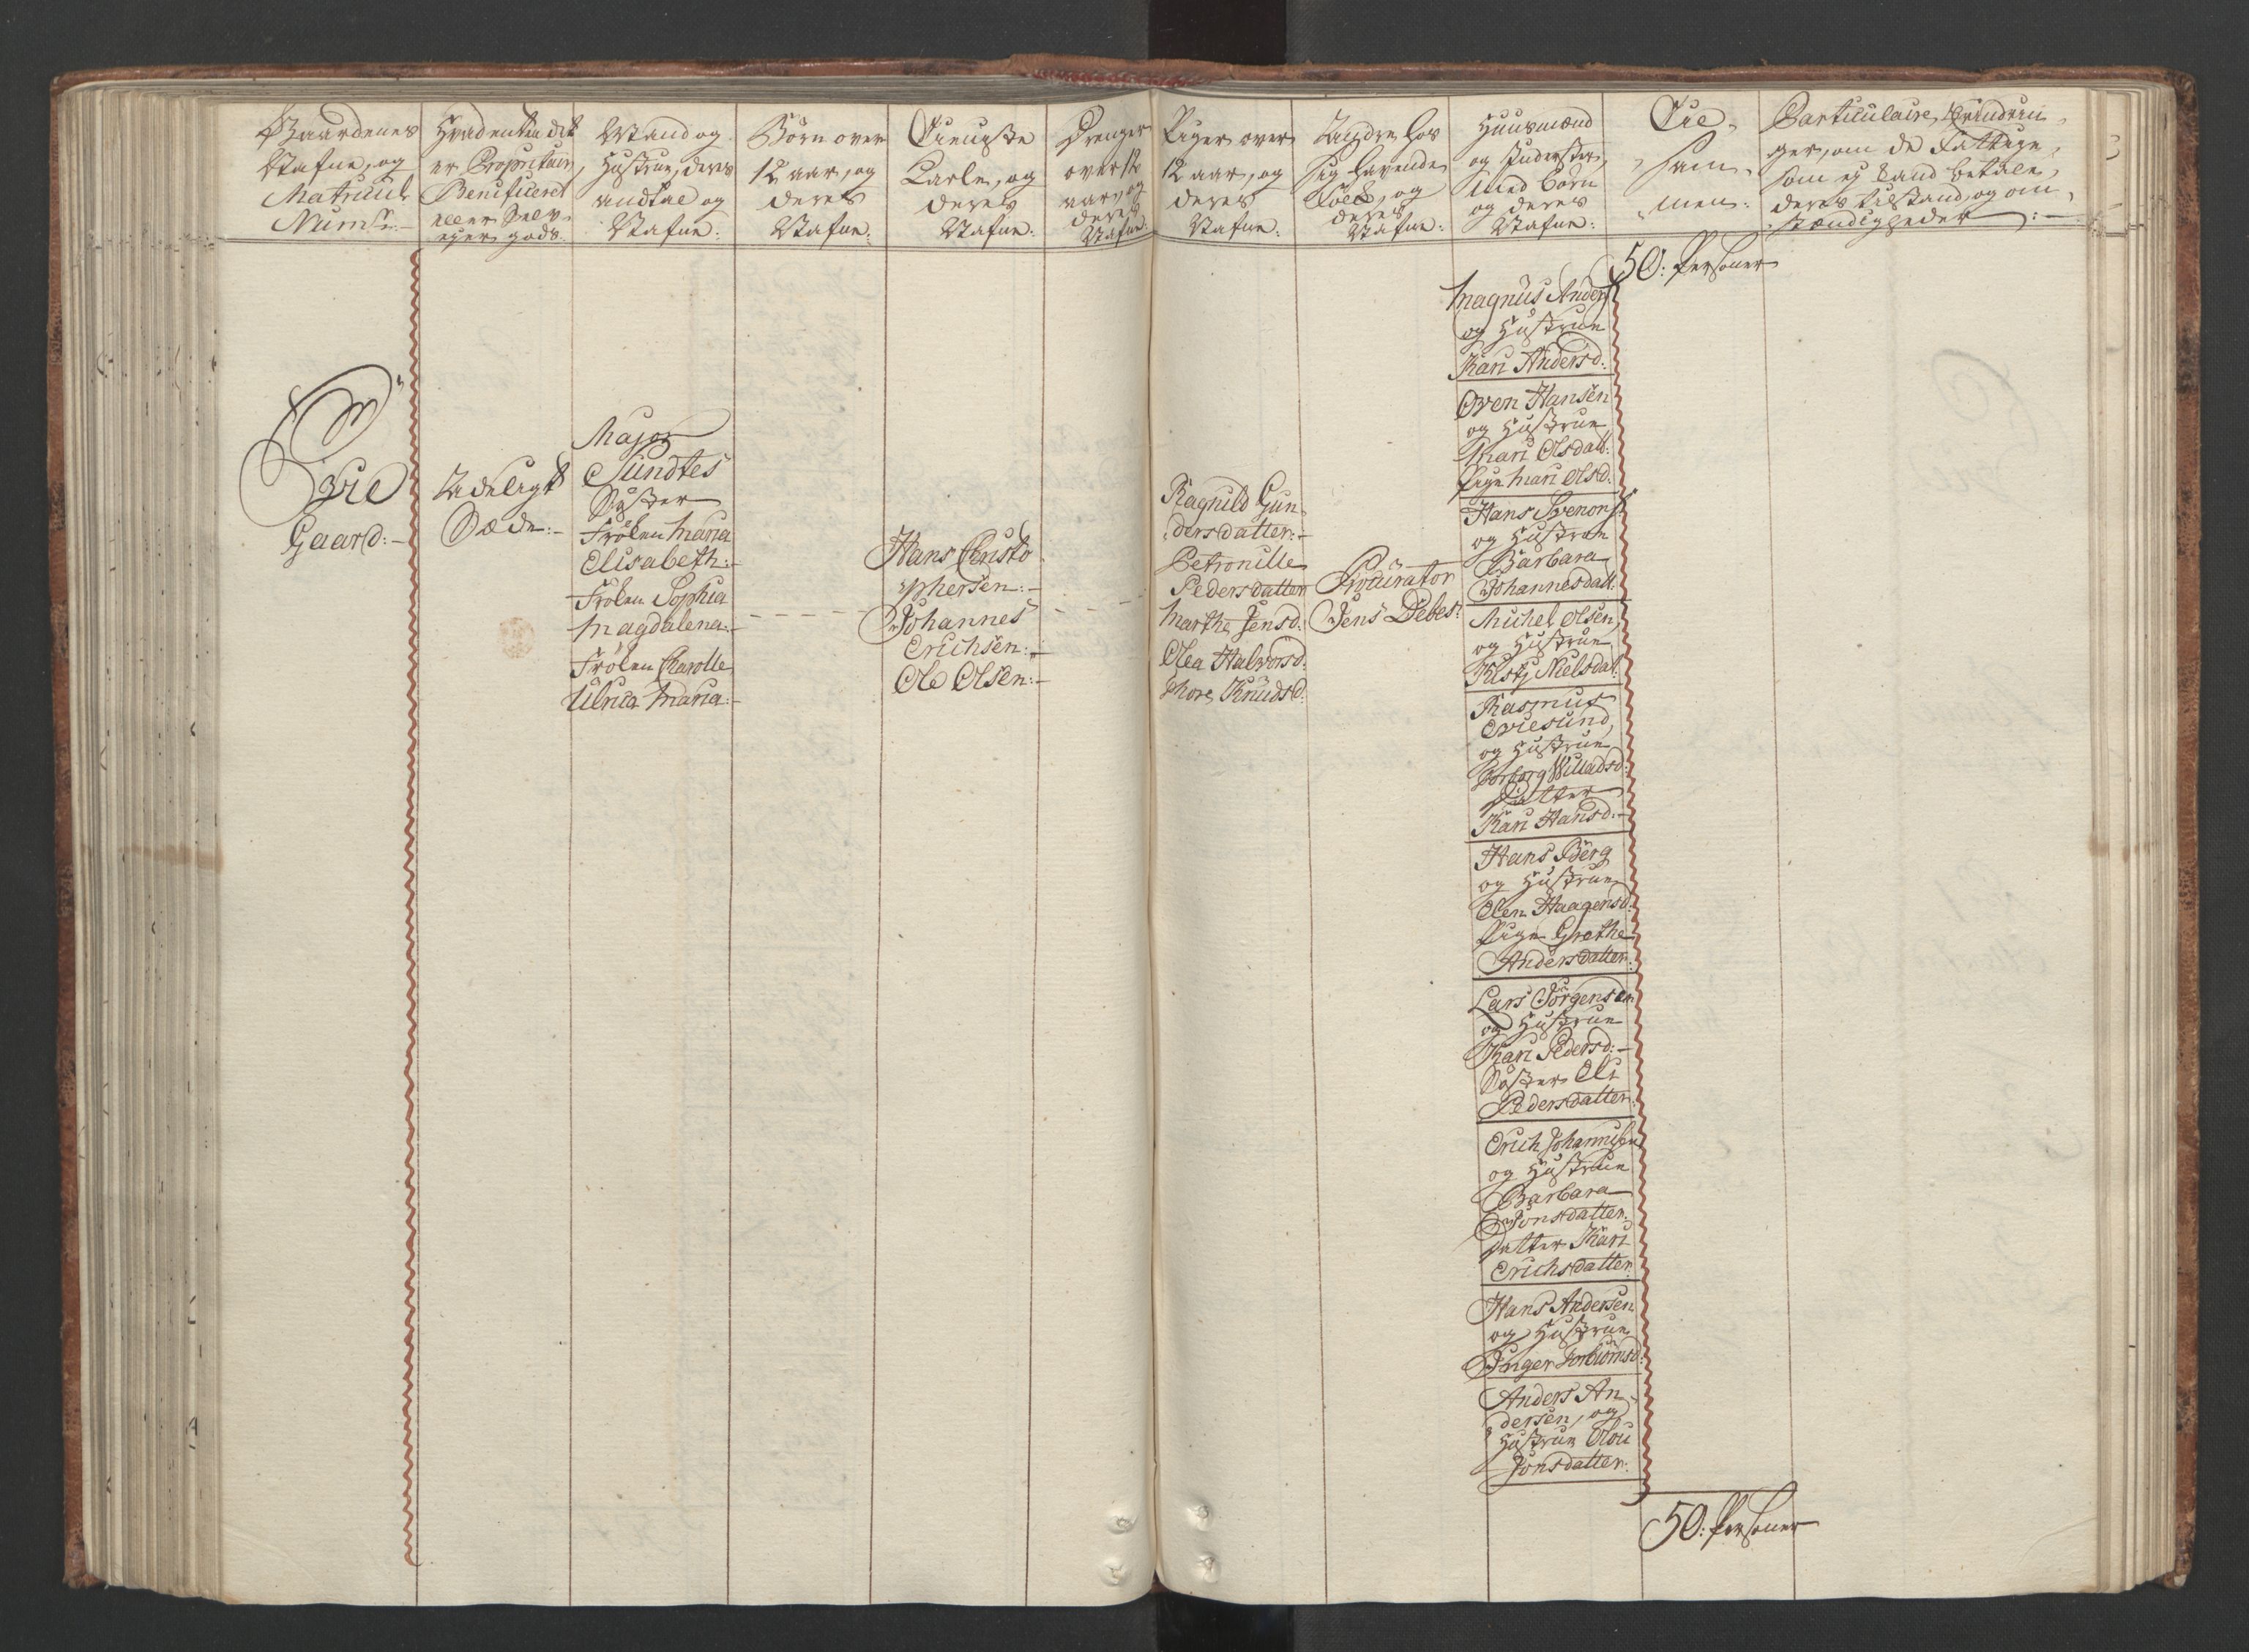 Gaardenes
Nafne, og
Matricul
Num:
Hvadenten det
er Proprietair,
Beneficeret
eller Selv-
eyer gods.
Mand og
Hustrue, deres
andtal og
Nafne:
Börn over
12 aar, og
deres
Nafne:
Tieniste
Karle, og
deres
Nafne:
Drenger
over 12
aar, og
deres
Nafne:
Piger over
12 aar, og
deres
Nafne:
Andre hos
sig havende
Folk, og
deres
Nafne:
Huusmænd
og Inderster,
med börn
og deres
Nafne:
Til-
sam-
men:
Particulaire Erindrin-
ger, om de Fattige,
som ej kand betale,
deres tilstand, og om-
stændigheder:
50: Personer
Evie
Gaard:
Adeligt
Sæde:
Major
Sundtes
Söster
Fröken Maria
Elisabeth:
Fröken Sophia
Magdalena:
Fröken Charolle
Ulrica Maria:
Hans Christo
phersen:
Johannes
Erichsen:
Ole Olsen:
Ragnild Gun-
dersdatter:
Petronille
Pedersdatter
Marthe Jensd:
Olea Halvorsd:
Thore Knudsd:
Procurator
Jens Debes:
Magnus Anders:
og Hustrue
Kari Andersd:
Even Hansen
og Hustrue
Mari Olsdatt:
Pige Mari Olsd:
Hans Svenons:
og Hustrue
Barbara
Johannesdatt:
Michel Olsen
og Hustrue
Kisty Nielsdat:
Rasmus
Eviesund,
og Hustrue
Torborg Willadsd:
Datter
Kari Hansd:
Hans Berg
og Hustrue
Olen Haagensd:
Pige Grethe
Andersdatter:
Lars Jörgensen
og Hustrue
Kari Pedersd:
Söster Oli
Pedersdatter:
Erich Johannisen
og Hustrue
Barbara
Jonsdatter:
Datter Kari
Erichsdatter:
Hans Andersen
og Hustrue
Inger Torbiörnsd:
Anders An-
dersen, og
Hustrue Olou
Jonsdatter:
50: Personer